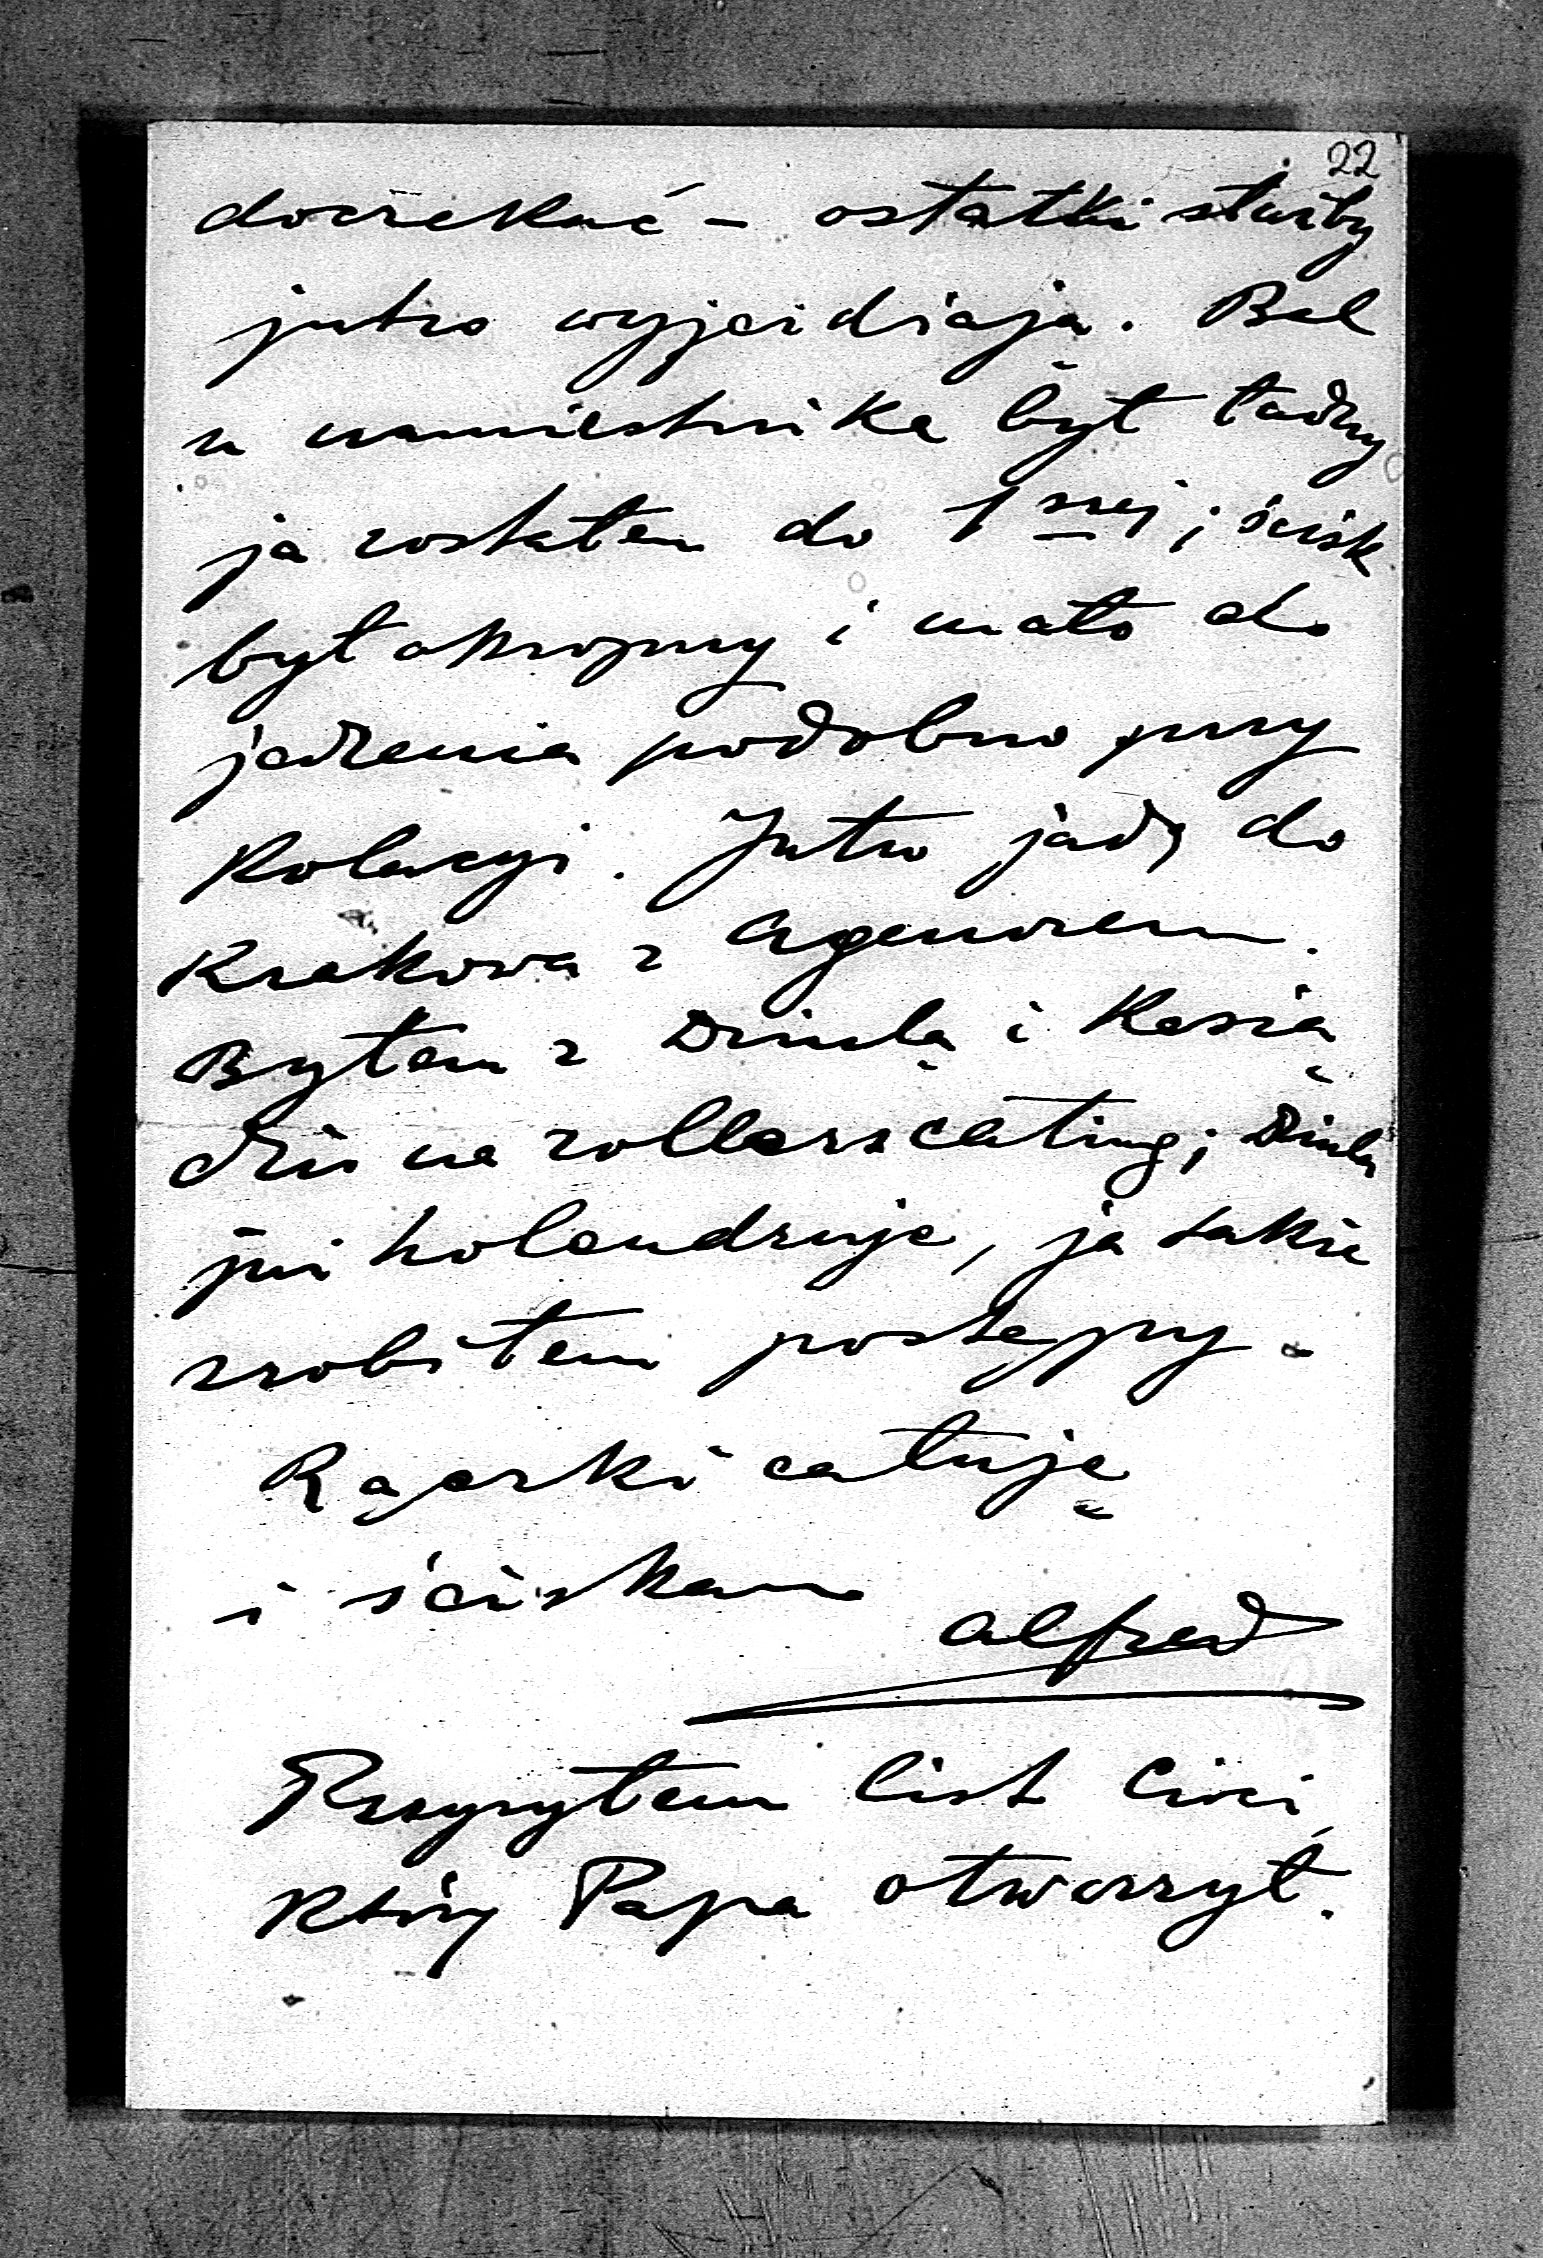 22
doczekać – ostatki służby
jutro wyjeżdżają. Bal
u namiestnika był ładny
ja zostałem do 1szej; ścisk
był okropny i mało do
jedzenia podobno przy
kolacyi. Jutro jadę do
Krakowa z Agenorem.
Byłem z Dziulą i Kasią
dziś na rollerscating; Dziula
już holendruje, ja także
zrobiłem postępy.
Rączki całuję
i ściskam
Alfred
Przyzytem list Cioci,
który Papa otworzył.